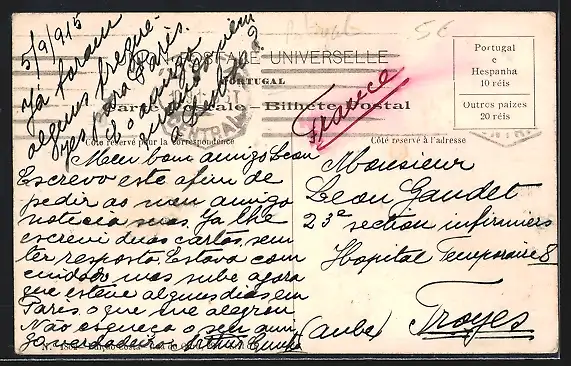 5/9/915
Já foram
algumas freguezas
para Paris.
E o amigo
quando vem
a Lisboa?
CARTE POSTALE UNIVERSELLE
PORTUGAL
Carte Postale - Bilhete Postal
CENTRAL
Côté réservé pour la Correspondence
Côté reservé à l'adresse
Portugal
e
Hespanha
10 réis
Outros paizes
20 réis
France
Meu bom amigo Leon
Escrevo este afim de
pedir ao meu amigo
noticia suas. Ja lhe
escrevi duas cartas, sem
ter resposta. Estava com
cuidado, mas sube agora
que esteve alguns dias em
Paris, o que me alegrou
Não esqueça o seu ami-
go verdadeiro Arthur
Monsieur
Leon Gaudet
23e section infirmiers
Hopital Temporaire 8
(aube) Troyes